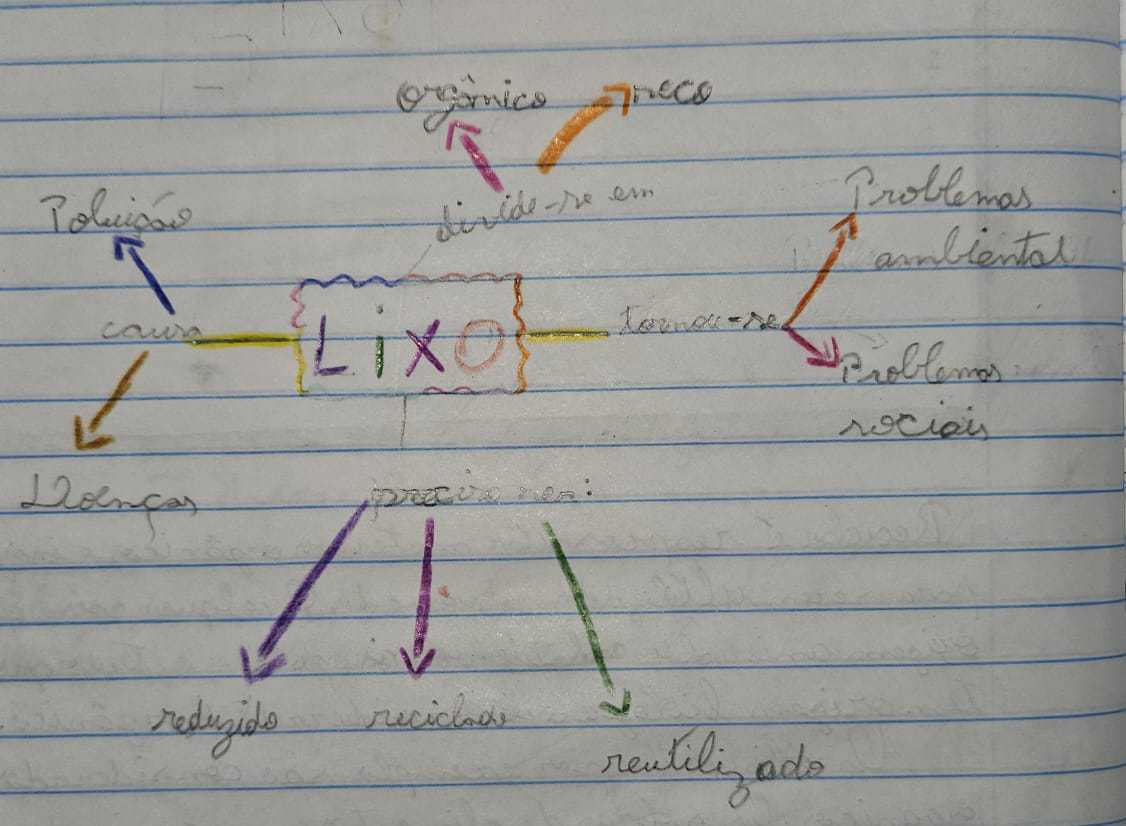 orgânico seco
divide-se em
Poluição
Problemas
ambiental
causa
LiXO
tornou-se
Problemas
sociais
Doenças
precisa ser:
reduzido reciclado
reutilizado